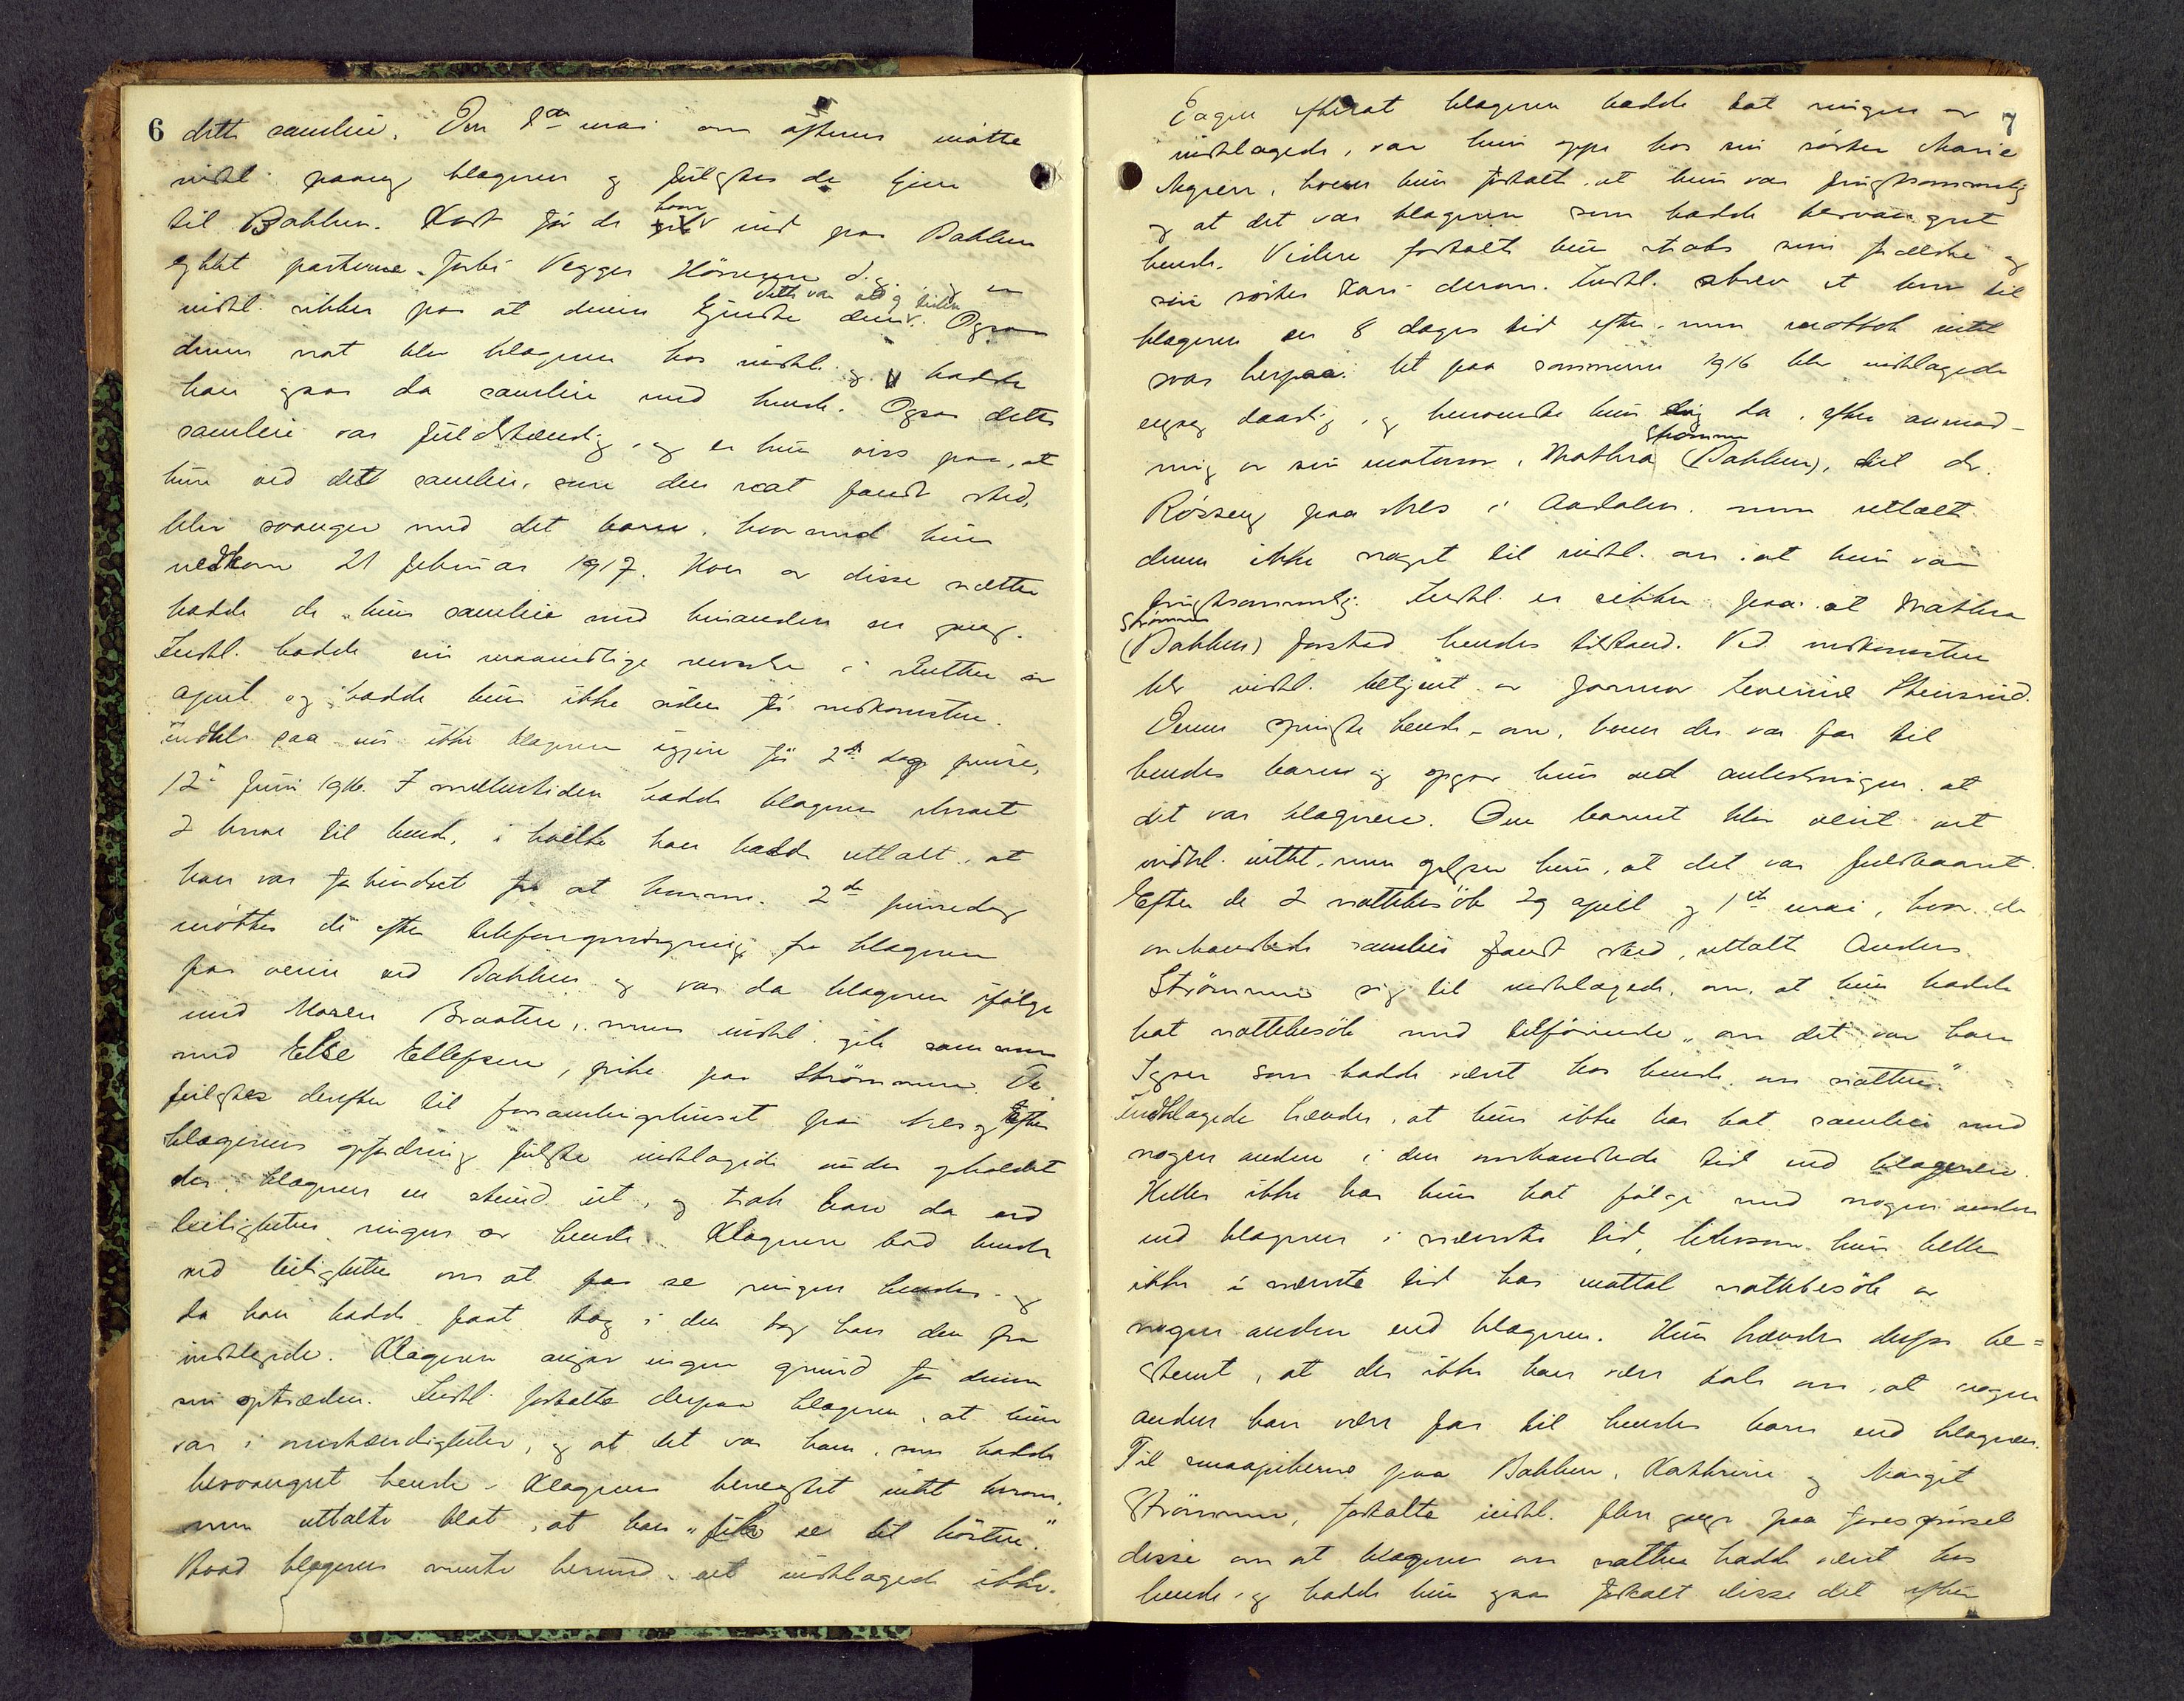 6
dette samleie. Den 1ste mai om aftenen møtte
indkl. paany klageren og fulgtes de hjem
til Bakken. Kort før de kom ind paa Bakken
gikk parterne forbi Vegger Hönsen d.y. og er
indkl. sikker paa at denne kjendte dem. Ogsaa
denne nat blev klageren hos indkl. og hadde
han ogsaa da samleie med hende. Ogsaa dette
samleie var fuldstændig, og er hun viss paa, at
hun ved det samleie, som den nat fandt sted,
blev svanger med det barn, hvormed hun
nedkom 21 februar 1917. Hver av disse nætter
hadde de kun samleie med hinanden en gang.
Indkl. hadde sin maanedlige renselse i slutten av
april og hadde hun ikke siden før nedkomsten.
Indkl. saa nu ikke klageren igjen før 2den dag pinse,
12 juni 1916. I mellemtiden hadde klageren skrevet
2 breve til hende, i hvilke han hadde uttalt, at
han var forhindret fra at komme. 2den pinsedag
møttes de efter telefonopringning fra klageren
paa veien ved Bakken og var da klageren ifølge
med Maren Braaten, mens indkl. gik sammen
med Else Ellefsen, pike paa Strömmen. De
fulgtes derefter til forsamlingshuset paa Nes og efter
klagerens opfordring fulgte indklagede under opholdet
der klageren en stund ut, og trak han da ved
leiligheten ringen av hende. Klageren bad hende
ved leiligheten om at faa se ringen hendes og
da han hadde faat tag i den tog han den fra
indklagede. Klageren angav ingen grund for denne
sin optræden. Indkl. fortalte derpaa klageren, at hun
var i omstændigheter, og at det var ham, som hadde
besvangret hende. Klageren benegtet intet herom,
men uttalte blot, at han „fik se til høsten."
Hvad klageren mente hermed, vet indklagede ikke.
7
Dagen efterat klageren hadde tat ringen av
indklagede, var hun oppe hos sin søster Marie
hvem hun fortalte, at hun var frugtsommelig
og at det var klageren som hadde besvangret
hende. Videre fortalte hun straks sine forældre og
sin søster Kari derom. Indkl. skrev et brev til
klageren en 8 dages tid efter, men mottok intet
svar herpaa. Ut paa sommeren 1916 blev indklagede
engang daarlig, og henvendte hun sig da, efter anmod-
ning av sin matmor, Mathea Strömmen (Bakken), til dr.
Rösseng paa Nes i Aadalen, men uttalte
denne ikke noget til indkl. om at hun var
frugtsommelig. Indkl. er sikker paa at Mathea
Strömmen
(Bakken) forstod hendes tilstand. Ved nedkomsten
blev indkl. betjent av jormor Severine Stensrud.
Denne spurgte hende om, hvem der var far til
hendes barn og opgav hun ved anledningen at
det var klageren. Om barnet blev veiet vet
indkl. intet, men oplyser hun, at det var fuldbaaret.
Efter de 2 nattebesök 29 april og 1ste mai, hvor de
omhandlede samleier fandt sted, uttalte Anders
Strömmen sig til indklagede om, at hun hadde
hat nattebesök med tilföiende „om det var han
Iver som hadde vært hos hende om natten."
Indklagede hævder, at hun ikke har hat samleie med
nogen anden i den omhandlede tid end klageren.
Heller ikke har hun hat følge med nogen anden
end klageren i nævnte tid, likesom hun heller
ikke i nævnte tid har mottat nattebesök av
nogen anden end klageren. Hun hævder derfor be=
stemt, at der ikke kan være tale om, at nogen
anden kan være far til hendes barn end klageren.
Til smaapikerne paa Bakken, Kathrine og Margit
Strömmen, fortalte indkl. flere gange paa forespørsel
disse om at klageren om natten hadde vært hos
hende og hadde hun ogsaa fortalt disse det efter